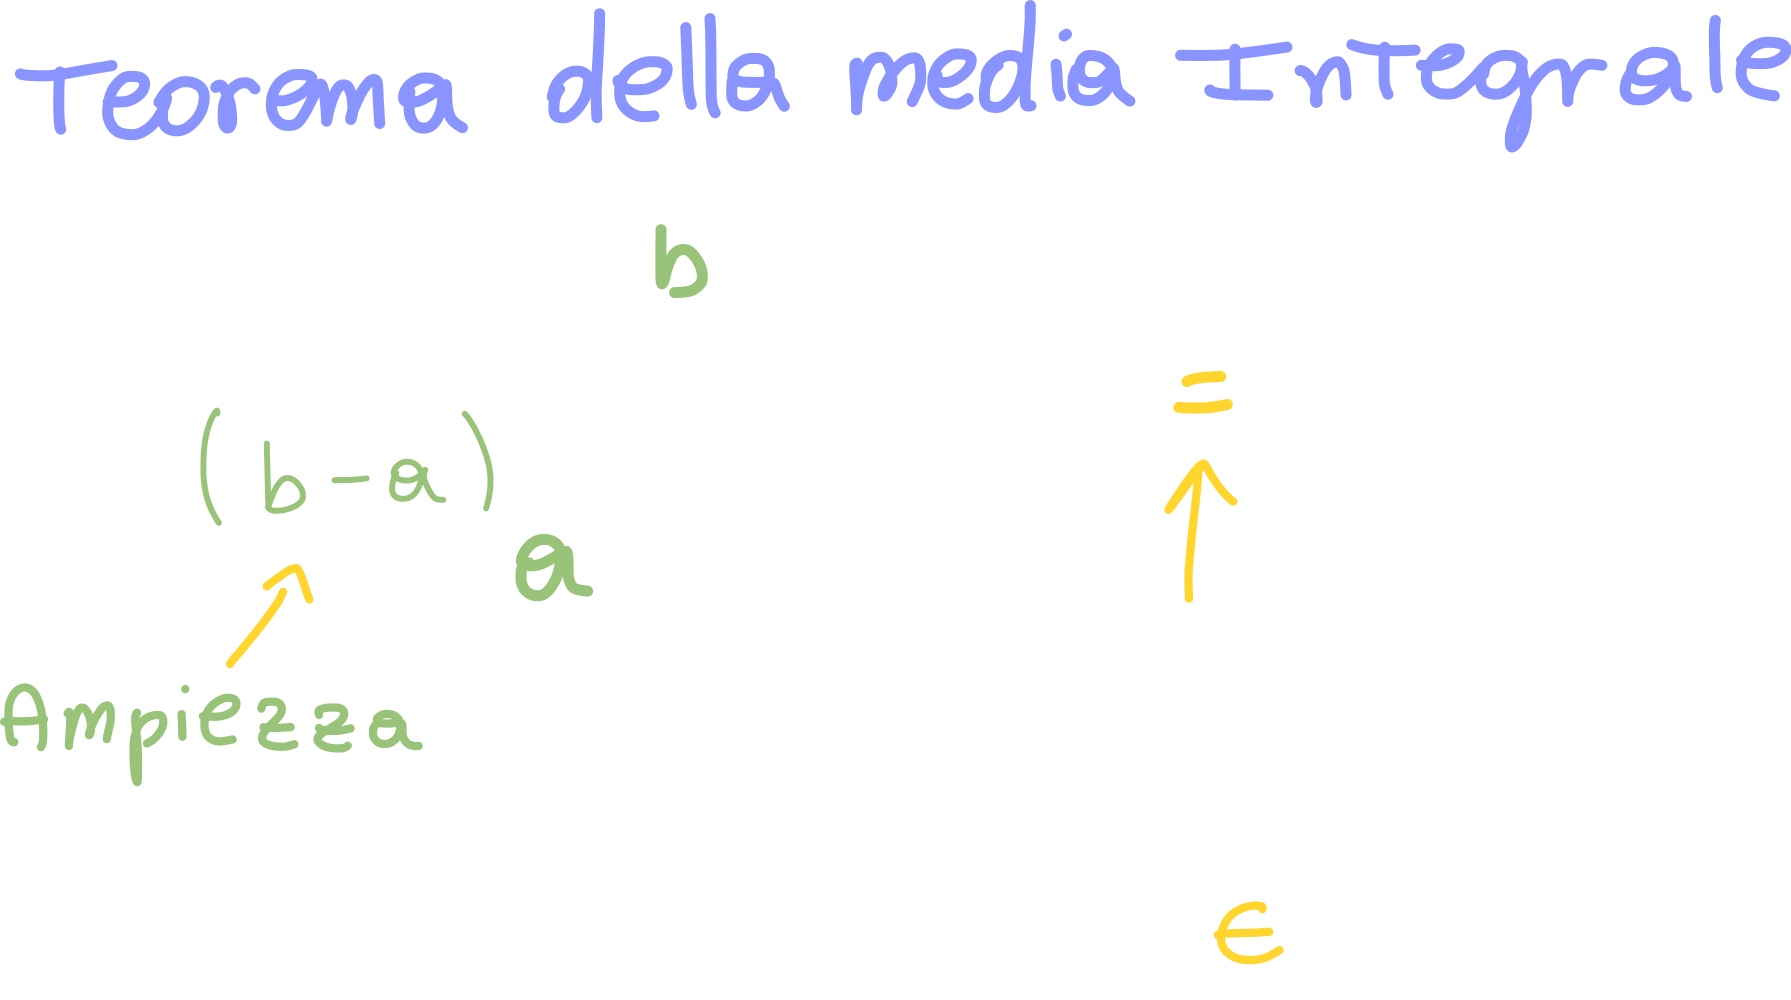 Teorema della media Integrale
b
=
(b-a)
a
Ampiezza
∈